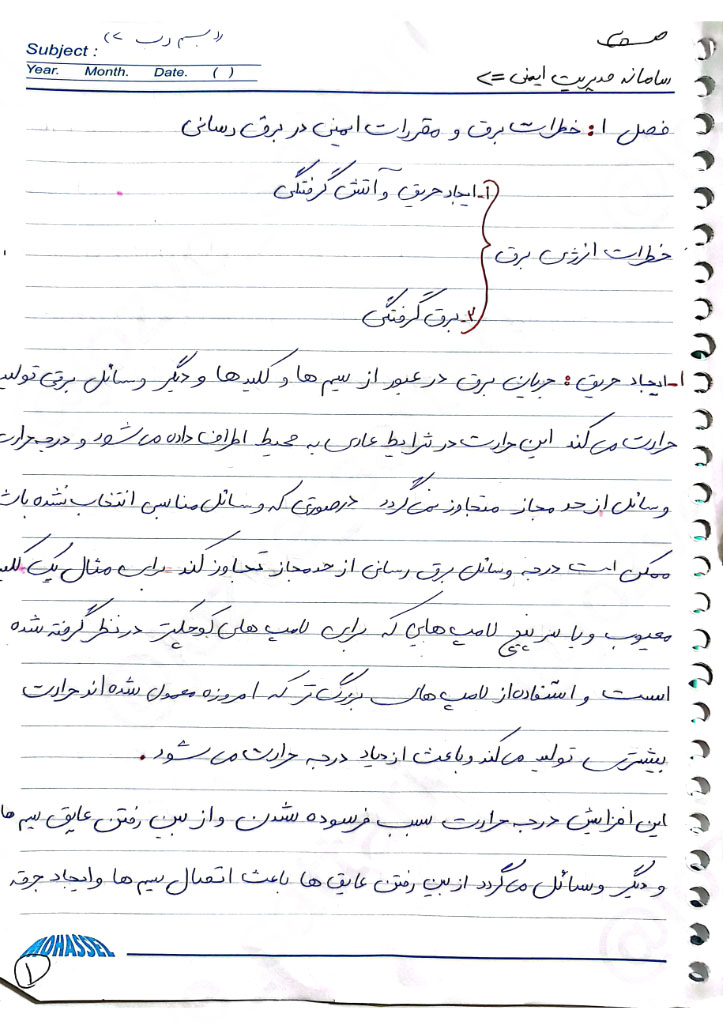 Subject :
Year. Month. Date. ( )
سامانه مدیریت ایمنی =>
فصل ۱: خطرات برق و مقررات ایمنی در برق رسانی
۱-ایجاد حریق و آتش گرفتگی
خطرات انرژی برق
۲-برق گرفتگی
۱-ایجاد حریق: جریان برق در عبور از سیم ها و کلیدها و دیگر وسائل برقی تولید
حرارت می کند این حرارت در شرایط عادی به محیط اطراف داده می شود و درجه حرارت
وسائل از حد مجاز متجاوز نمی گردد در صورتی که وسائل مناسبی انتخاب نشده باش
ممکن است درجه وسائل برق رسانی از حد مجاز تجاوز کند برای مثال یک کلید
معیوب و یا سر پیچ لامپ هایی که برای لامپ های کوچکتر در نظر گرفته شده
است و استفاده از لامپ های بزرگ تر که امروزه معمول شده اند حرارت
بیشتری تولید می کند و باعث ازدیاد درجه حرارت می شود.
این افزایش درجه حرارت سبب فرسوده شدن و از بین رفتن عایق سیم ها
و دیگر وسائل می گردد از بین رفتن عایق ها باعث اتصال سیم ها و ایجاد جرقه
MOHASSEL
۱